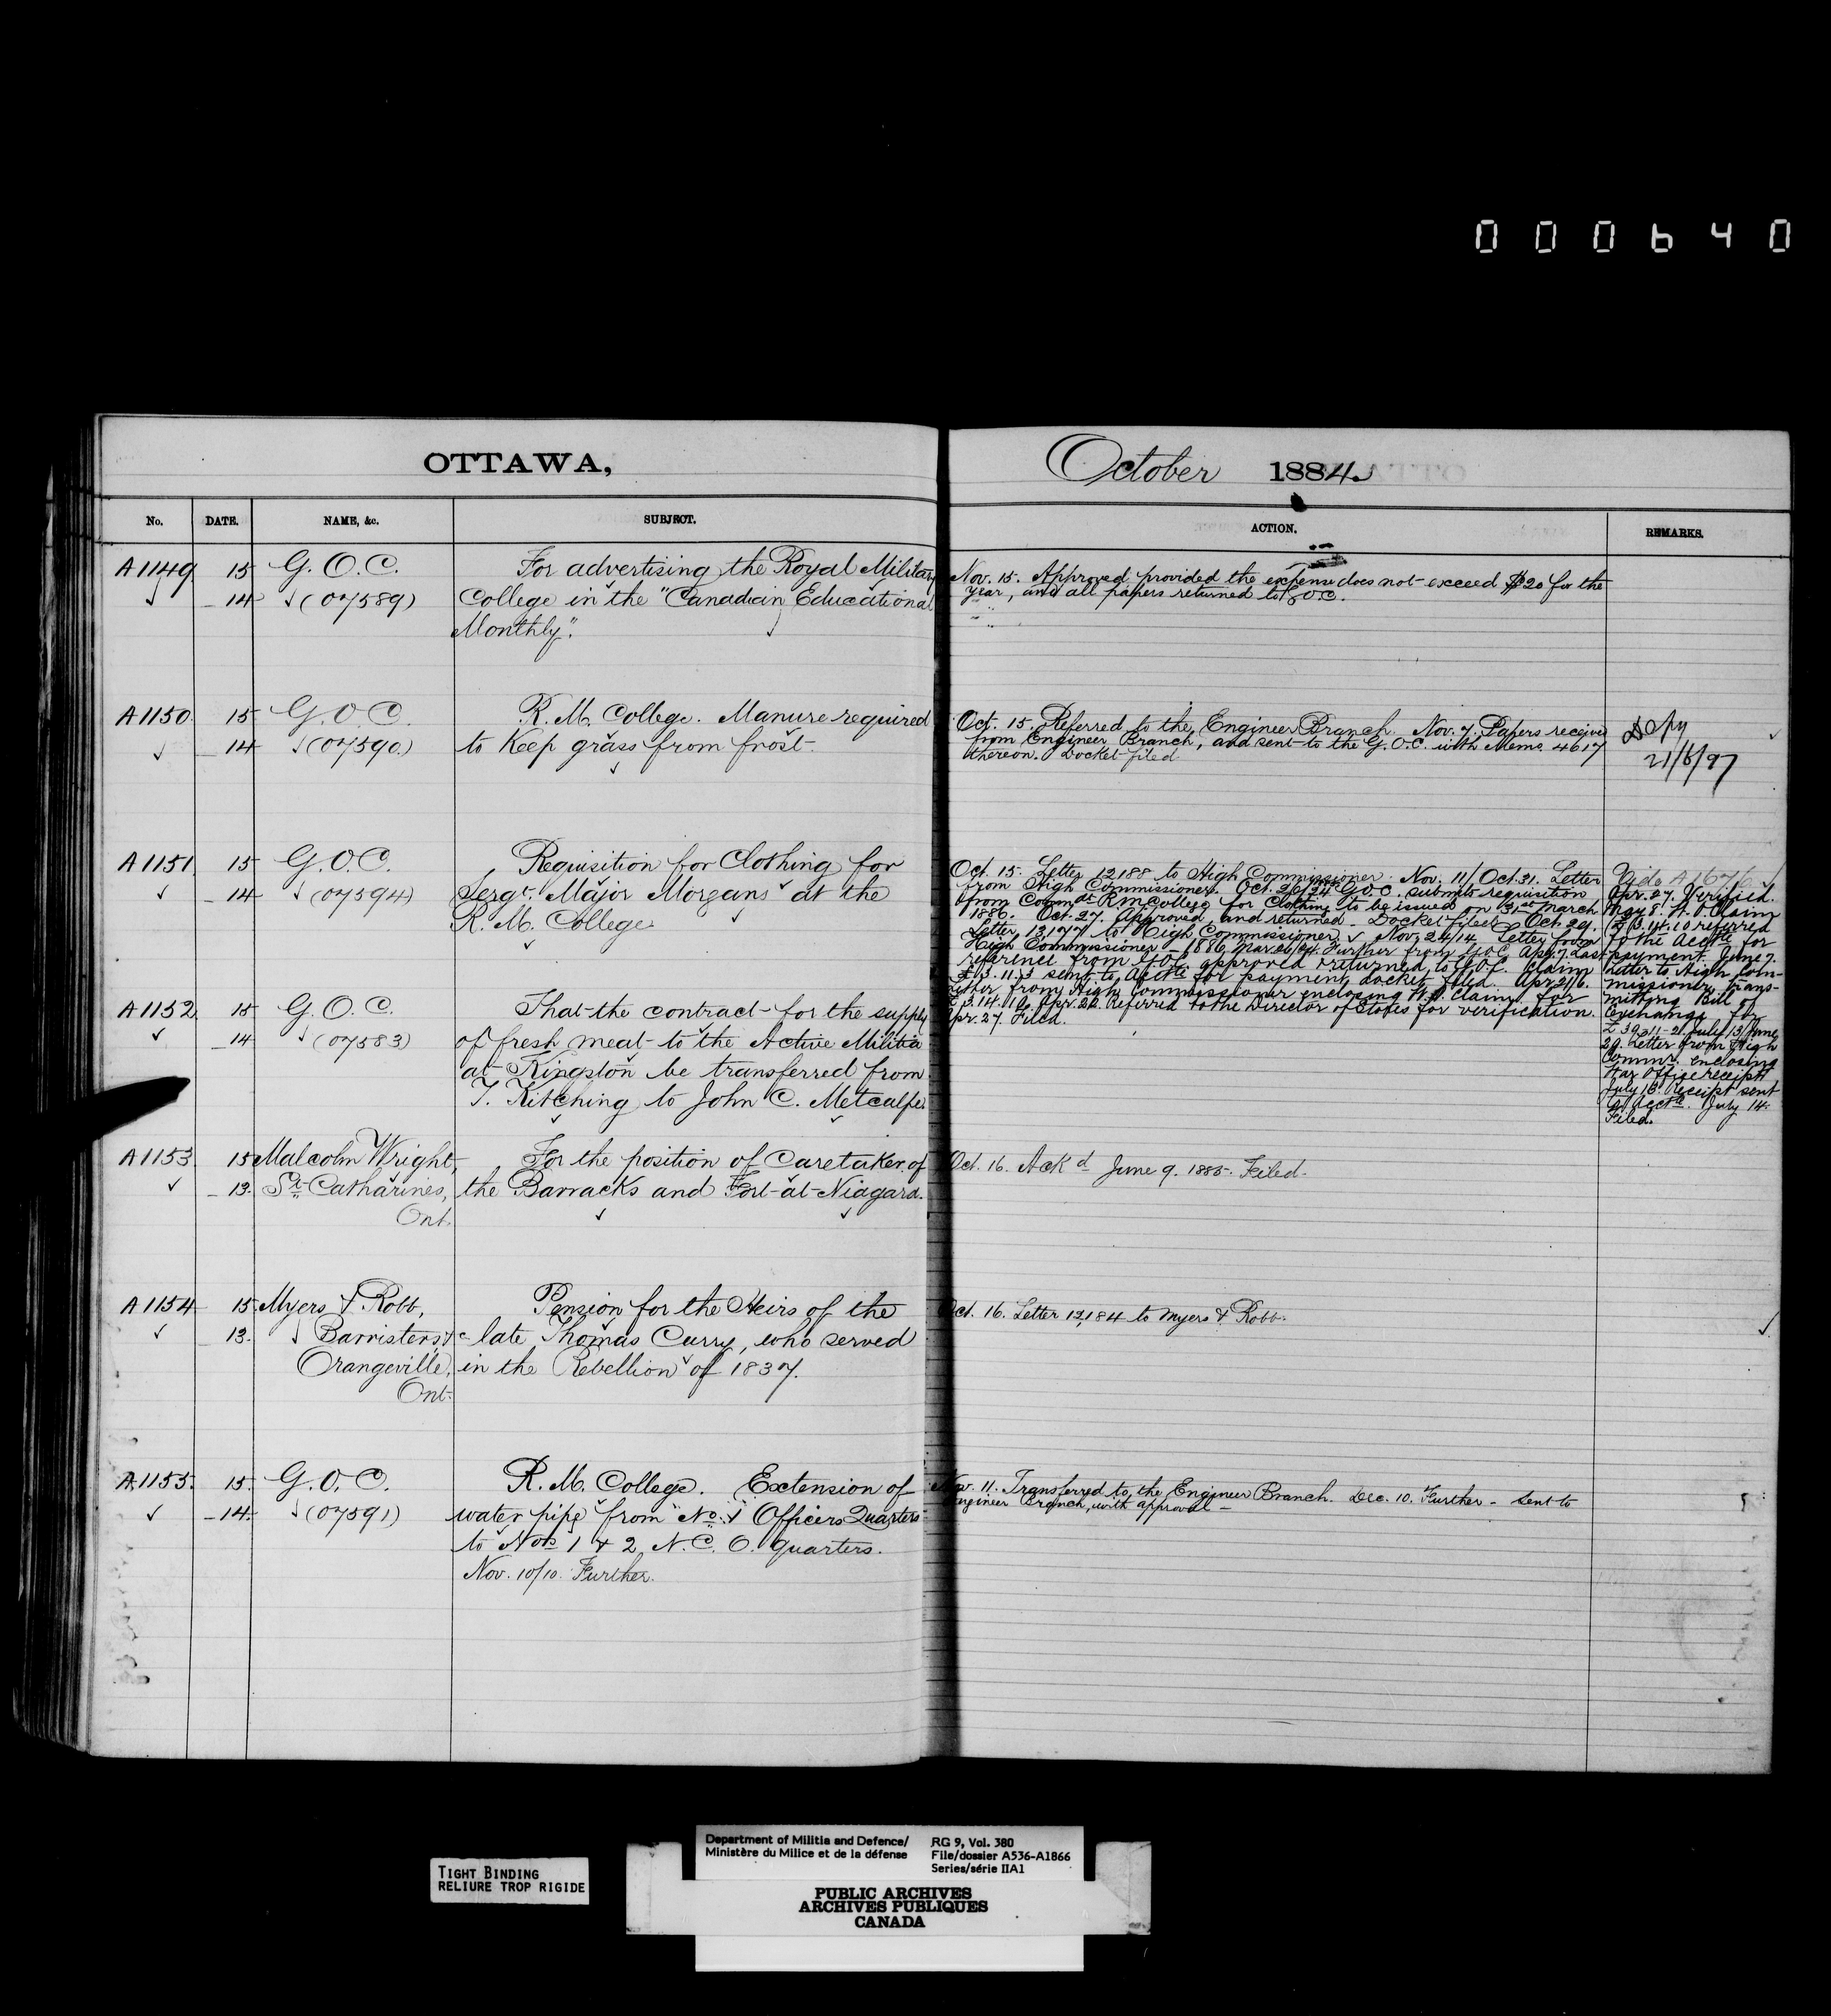 000640
OTTAWA,
October 1884.
No. DATE. NAME, &c. SUBJECT.
ACTION. REMARKS.
A1149 15 G. O. C. For advertising the Royal Military
14 (07589) College in the "Canadian Educational
Monthly".
Nov. 15. Approved provided the expense does not exceed $20 for the
year, and all papers returned to G.O.C.
A1150 15 G. O. C. R. M. College. Manure required
14 (07590) to Keep grass from frost.
Oct. 15. Referred to the Engineer Branch. Nov. 7. Papers received
from Engineer Branch, and sent to the G.O.C. with Memo 4617
thereon. Docket filed.
21/6/97
A1151 15 G. O. C. Requisition for Clothing for
14 (07594) Sergt. Major Morgans at the
R. M. College
Oct. 15. Letter 12188 to High Commissioner. Nov. 11/Oct. 31. Letter
from High Commissioner. Oct. 26/24 G.O.C. submits requisition
from Commdt. R.M. College for Clothing to be issued on 31st March
1886. Oct. 27. Approved, and returned. Docket filed. Oct. 29.
Letter 13177 to High Commissioner. Nov. 24/14 Letter from
High Commissioner - 1886 Mar. 26/24. Further from G.O.C. Apl. 7. Last
reference from G.O.C. approved & returned to G.O.C. Claim
£13.11.3 sent to Acctt. for payment, docket filed. Apr. 21/6.
Letter from High Commissioner enclosing W.O. Claim for
£13.14.10. Apr. 22. Referred to the Director of Stores for verification.
Apr. 27. Filed.
Vide A1676
Apr. 27. Verified.
May 8. W.O. Claim
£13.14.10 referred
to the Acctt. for
payment. June 7.
Letter to High Com-
missioner trans-
mitting Bill of
Exchange for
£39-11-21. July 13/June
29. Letter from High
Commr. enclosing
War Office receipt
July 13. Receipt sent
to Acctt. July 14.
Filed.
A1152 15 G. O. C. That the contract for the supply
14 (07583) of fresh meat to the Active Militia
at Kingston be transferred from
T. Kitching to John C. Metcalfe.
A1153 15 Malcolm Wright, For the position of Caretaker of
13. St. Catharines, the Barracks and Fort at Niagara.
Ont.
Oct. 16. Ackd. June 9. 1885. Filed.
A1154 15. Myers & Robb, Pension for the Heirs of the
13. Barristers, &c late Thomas Curry, who served
Orangeville, in the Rebellion of 1837.
Ont.
Oct. 16. Letter 12,184 to Myers & Robb.
A1155. 15. G. O. C. R. M. College. Extension of
14. (07591) water pipe from No. 1 Officers Quarters
to Nos. 1 & 2, N. C. O. quarters.
Nov. 10/10. Further.
Nov. 11. Transferred to the Engineer Branch. Dec. 10. Further - Sent to
Engineer Branch, with approval -
TIGHT BINDING
RELIURE TROP RIGIDE
Department of Militia and Defence/
Ministère du Milice et de la défense
RG 9, Vol. 380
File/dossier A536-A1866
Series/série IIA1
PUBLIC ARCHIVES
ARCHIVES PUBLIQUES
CANADA